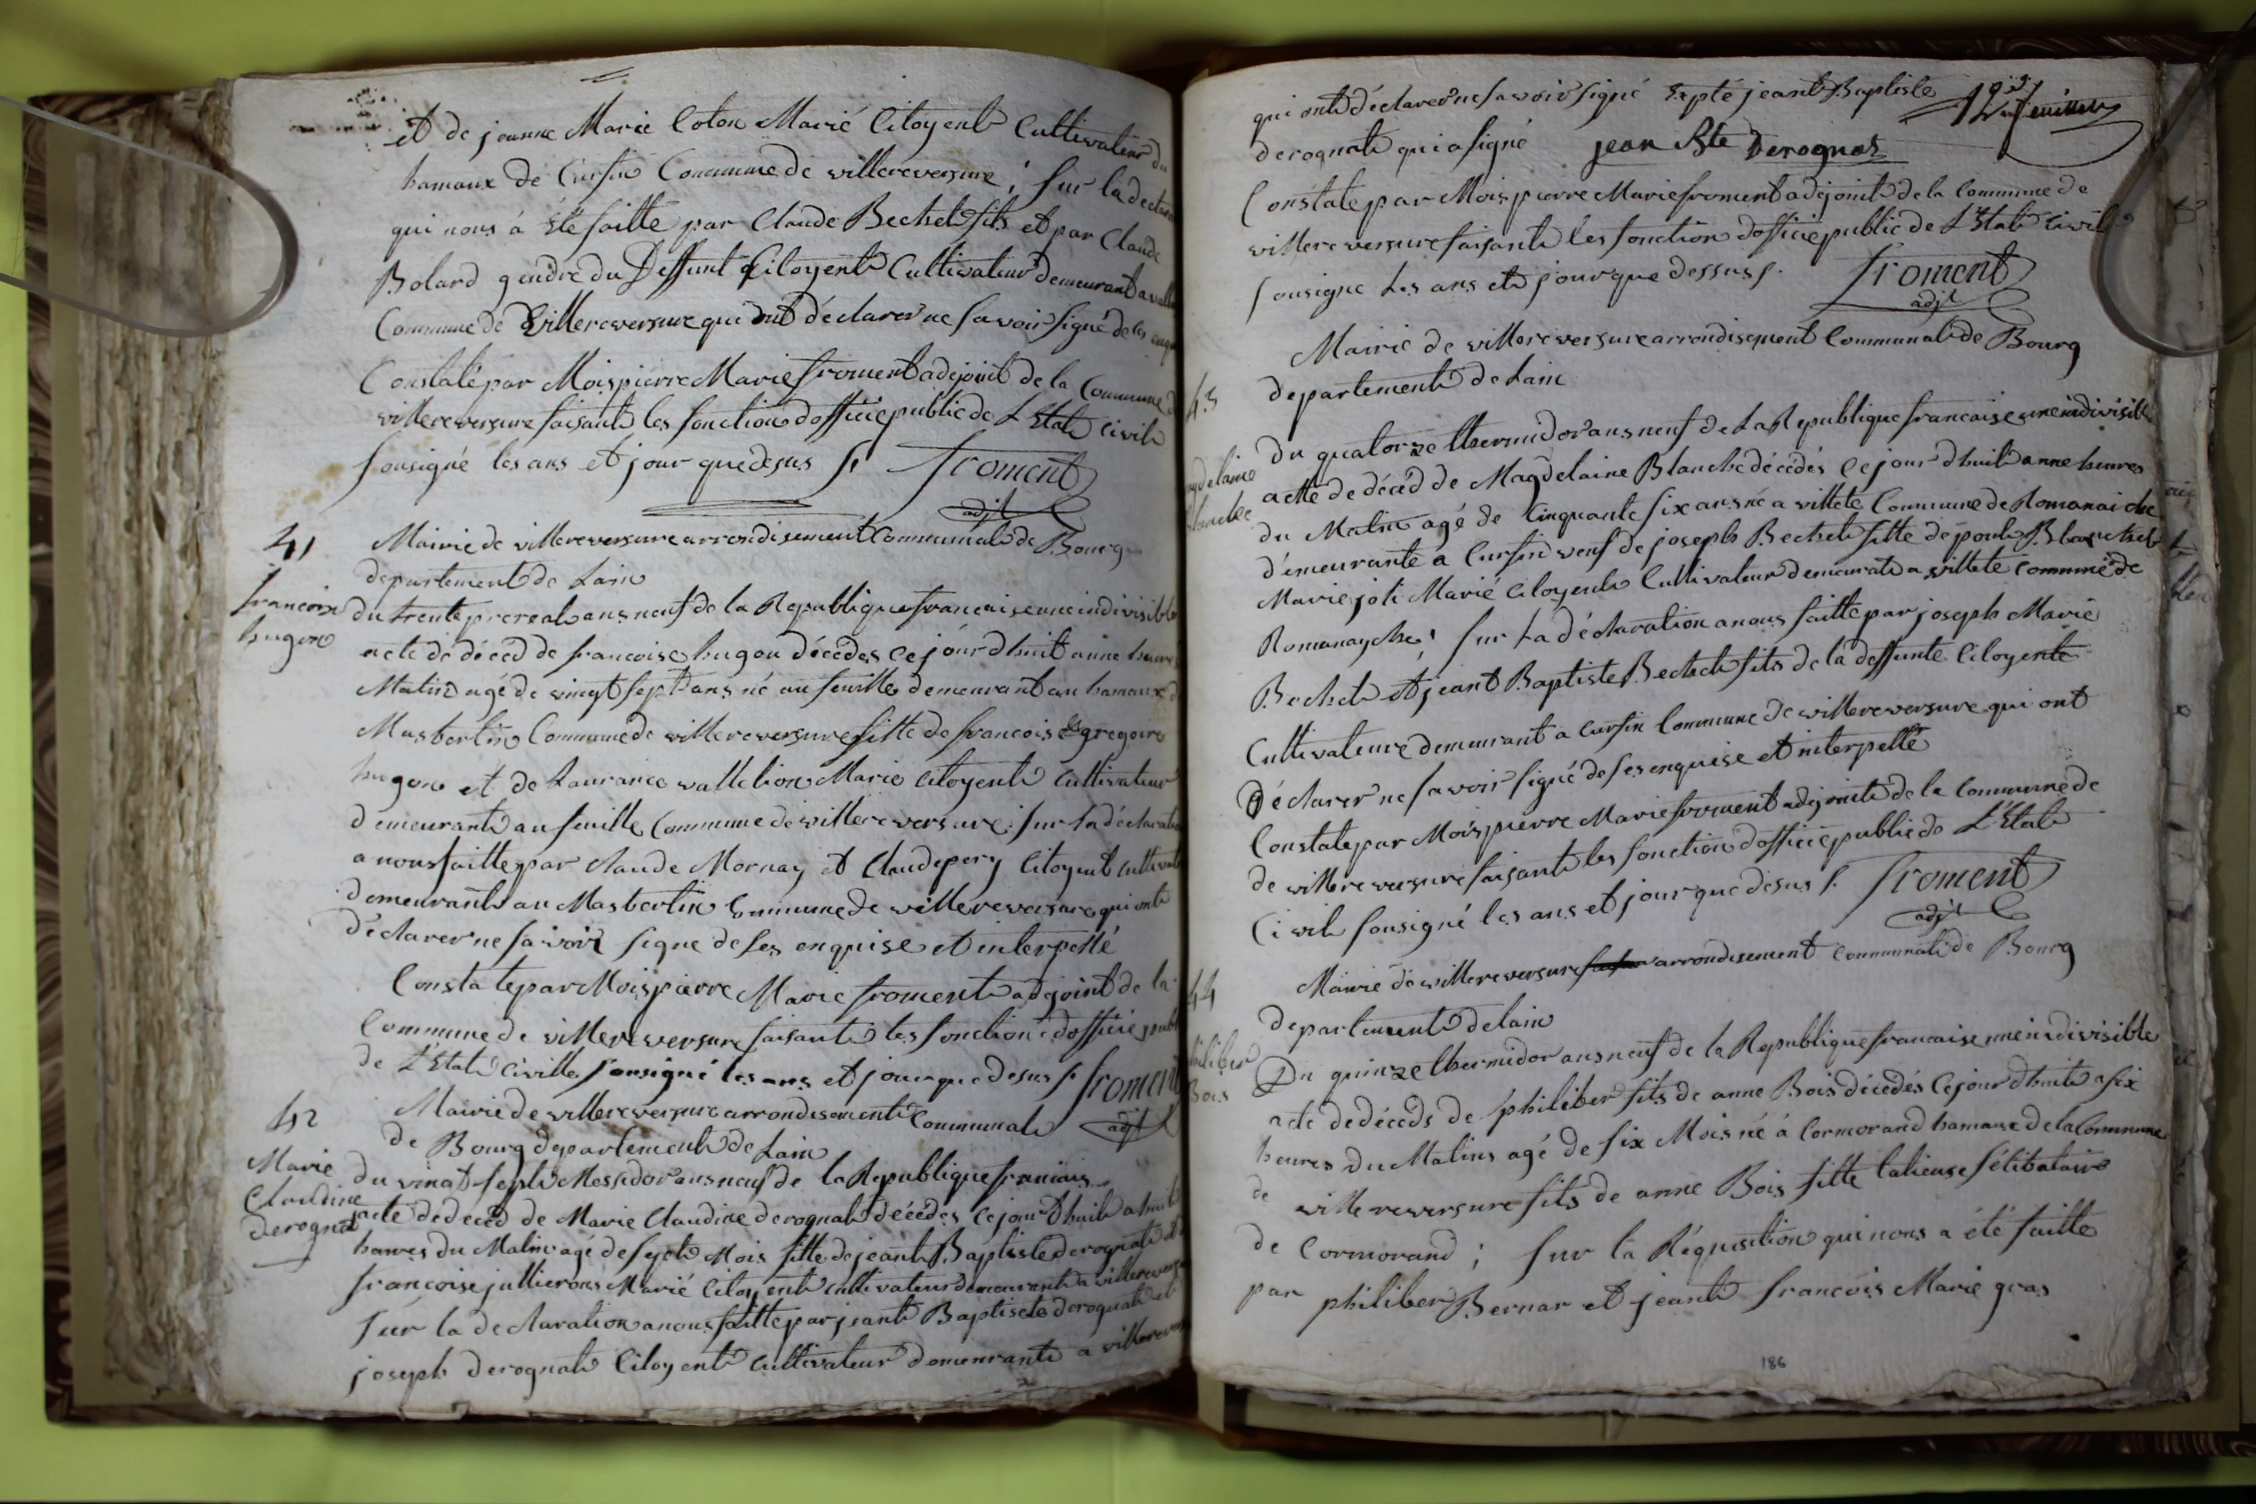 et de jeanne Marie Coton Marié Citoyent Cultivateur du
hamaux de Cursin Commune de villereversure ; sur la declara
qui nous á été faitte par Claude Bechet fils et par Claude
Bolard gendre du Deffunt Citoyent Cultivateur demeurant a
Commune de Villereversure qui ont déclarer ne savoir signé de
Constaté par Mois pierre Marie froment adejoint de la Commune d
villereversure faisant les fonction dofficié public de L'Etat Civil
sousigné les ans et jour que desus s. froment
adjt
41
Mairie de villereversure arrondisement Communal de Bourg
departement de Lain
francoise
hugon
du trente prereal ans neuf de la Republique francaise une indivisible
acte de décéd de francoise hugon décédes ce jour dhuit a une heures
Matin agé de vingt sept ans né au feuille demeurant au hamaux d
Masbertin Commune de villereversure fille de francois gregoire
hugon et de Laurance Marie Citoyent Cultivateur
demeurant au feuille Commune de villereversure sur la déclaration
a nous faitte par Claude Mornay et Claude pery Citoyent Cultivat
demeurant au Masbertin Commune de villereversure qui ont
déclarer ne savoir signe de ses enquise et interpellé
Constaté par Mois pierre Marie froment adejoint de la
Commune de villereversure faisant les fonction dofficié publi
de L'Etat Civille sousigné les ans et jour que desus s. froment
adjt
42
Mairie de villereversure arrondisement Communal
de Bourg departement de Lain
Marie
Claudine
derognat
du vingt sept Messidor ans neuf de la Republique francais
acte de deced de Marie Claudine derognat décédes ce jour dhuit a huit
heures du Matin agé de sept Mois fille de jeant Baptiste derognat et
francoise jullieron Marié Citoyent cultivateur demeurant a villerever
sur la declaration a nous faitte par jeant Baptiste derognat et
joseph derognat Citoyent Cultivateur demeurant a villerever
qui ont déclarer ne savoir signé Septé jeant Baptiste
derognat qui a signé jean Bte Derognat
Constaté par Mois pierre Marie froment adejoint de la Commune de
villereversure faisant les fonction dofficié public de L'Etat Civil
sousigne Les ans et jour que dessus s. froment
adjt
43
Mairie de villereversure arrondisement Communal de Bourg
departement de Lain
agdelaine
blanche
du quatorze thermidor ans neuf de La Republique francaise une indivisible
acte de décéd de Magdelaine Blanche décédés Ce jour dhuit a une heures
du Matin agé de Cinquante six ans né a villete Commune de Romanaiche
demeurante a Cursin veuf de joseph Bechet fille de poul Blanchet
Marie joli Marié Citoyent Cultivateur demeurant a villete Commune de
Romanayche ; sur La déclaration a nous faitte par joseph Marie
Bechet et jeant Baptiste Bechet fils de la deffunte Citoyente
Cultivateur demeurant a Cursin Commune de villereversure qui ont
déclarer ne savoir signé de ses enquise et interpellé
Constaté par Mois pierre Marie froment adejoint de la Commune de
de villereversure faisant les fonction dofficié public de L'Etat
Civil sousigné les ans et jour que desus s. froment
adjt
44
Mairie de villereversure arrondisement Communal de Bourg
departement de lain
philiber
Bois
Du quinze thermidor ans neuf de la Republique francaise une indivisible
acte de décéds de philiber fils de anne Bois décédés Ce jour dhuit a six
heures du Matins agé de six Mois né á Cormorand hamaux de la Commune
de villereversure fils de anne Bois fille talieuse sélibataire
de Cormorand ; sur la Réquisition qui nous a été faitte
par philiber Bernar et jeant francois Marie gras
186